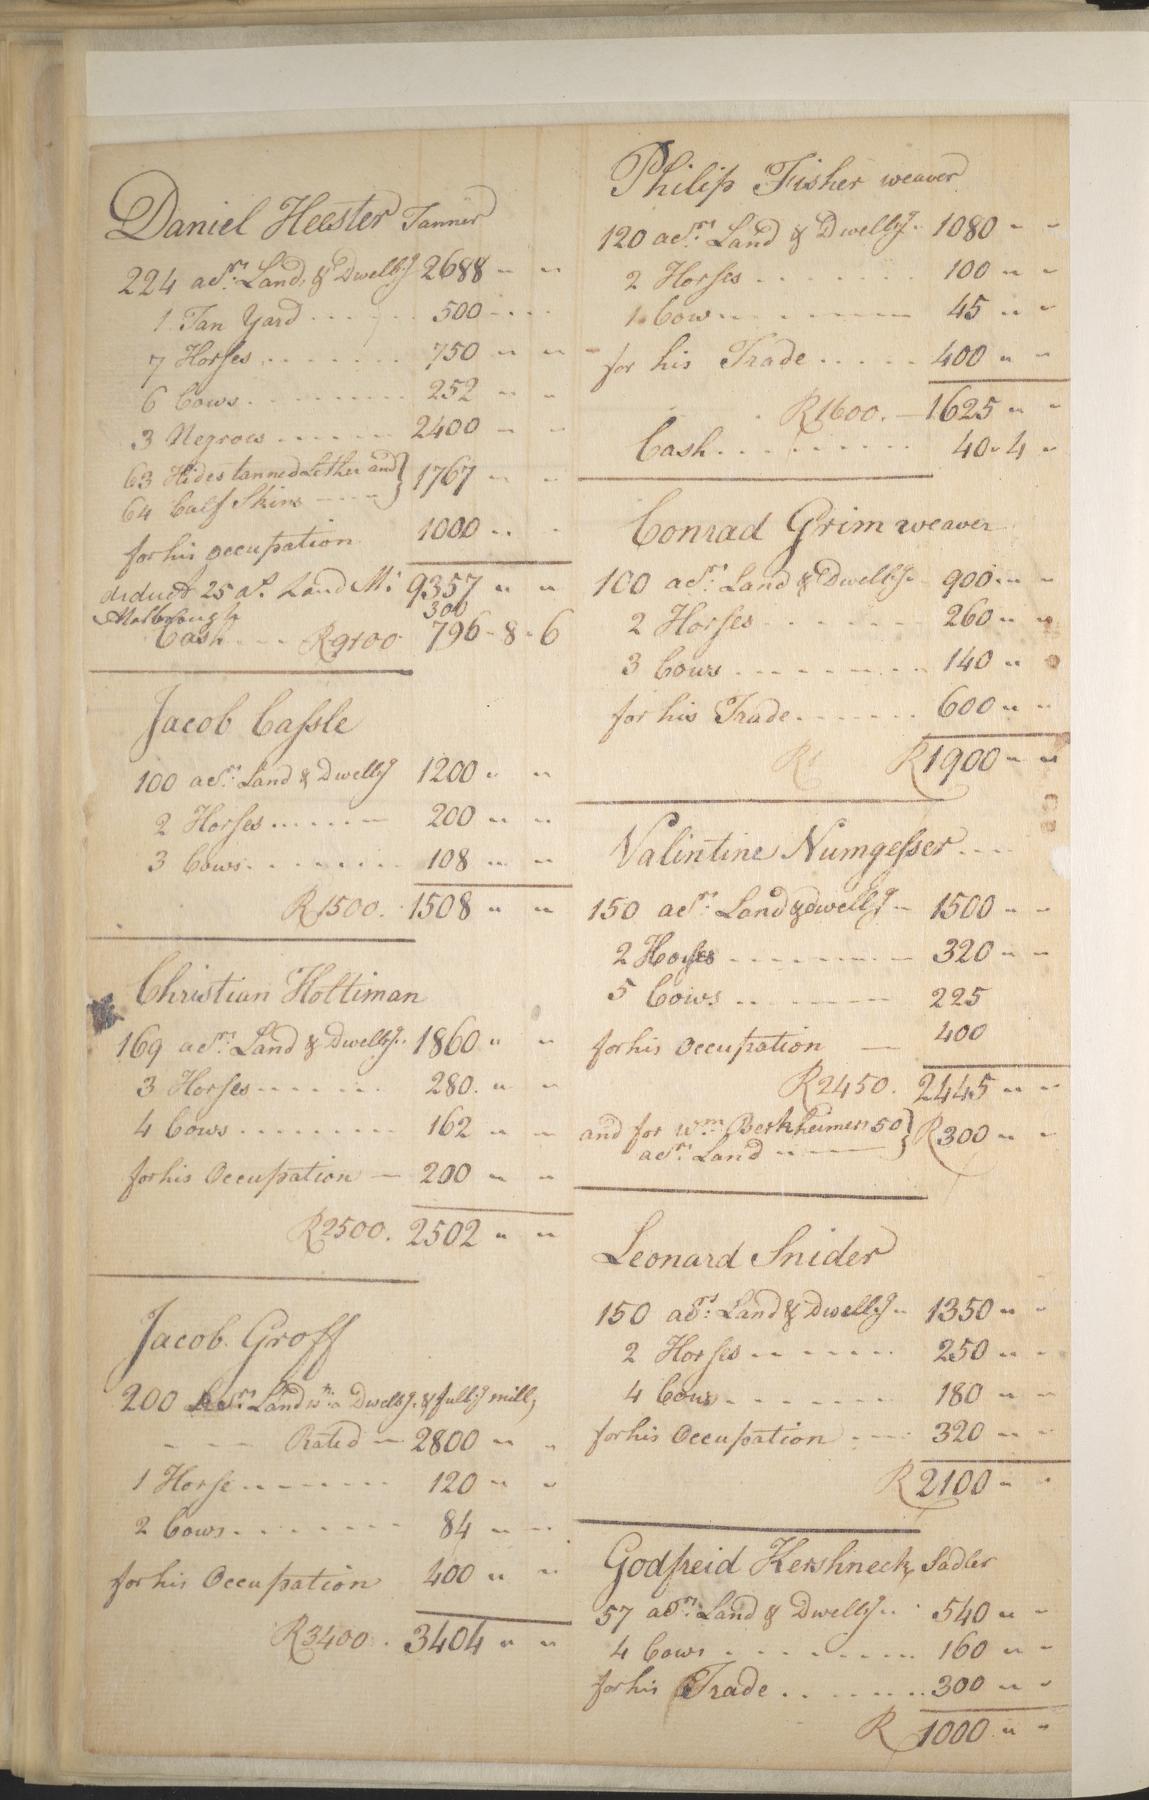 Daniel Heester Tanner
224 acrs. Land, & Dwellg 2688 " "
1 Tan Yard ..... 500 ....
7 Horses ....... 750 " "
6 Cows ........ 252 " "
3 Negroes ...... 2400 " "
63 Hides tanned Lether and } 1767 " "
64 Calf Skins ----
for his occupation 1000 ..
deduct 25 as. Land 9357 " "
Malbrough 300
Cash --- R9100 796 - 8 - 6
Jacob Cassle
100 acrs. Land & Dwellg 1200 " "
2 Horses ..... 200 " "
3 Cows ........ 108 " "
R1500. 1508 " "
Christian Holtiman
169 acrs. Land & Dwellg. 1860 " "
3 Horses ...... 280. " "
4 Cows ......... 162 " "
for his Occupation — 200 " "
R2500. 2502 " "
Jacob Groff
200 Acrs. Land wth. a Dwellg. & fullg mill,
- - - Rated — 2800 " "
1 Horse ------- 120 " "
2 Cows ........ 84 " "
for his Occupation 400 " "
R3400. 3404 " "
Philip Fisher weaver
120 acrs. Land & Dwellg. 1080 " "
2 Horses ...... 100 " "
1 Cow ........ 45 " "
for his Trade ..... 400 " "
R1600. — 1625 " "
Cash ......... 40 " 4 "
Conrad Grim weaver
100 acrs. Land & Dwellg 900 " "
2 Horses ....... 260 " "
3 Cows ........ 140 " "
for his Trade ...... 600 " "
R1 R1900 " "
Valintine Numgesser
150 acrs. Land & dwellg 1500 " "
2 Horses -------- 320 " "
5 Cows ....... 225
for his Occupation — 400
R2450. 2445 " "
and for Wm. Berkheimers 50 } R300 " "
acrs. Land -----
Leonard Snider
150 acrs. Land & Dwellg 1350 " "
2 Horses ------- 250 " "
4 Cows ........ 180 " "
for his Occupation ---- 320 " "
R2100 " "
Godfreid Kershneck, Sadler
57 acrs. Land & Dwellg. 540 " "
4 Cows ......... 160 " "
for his Trade ........ 300 " "
R 1000 " "